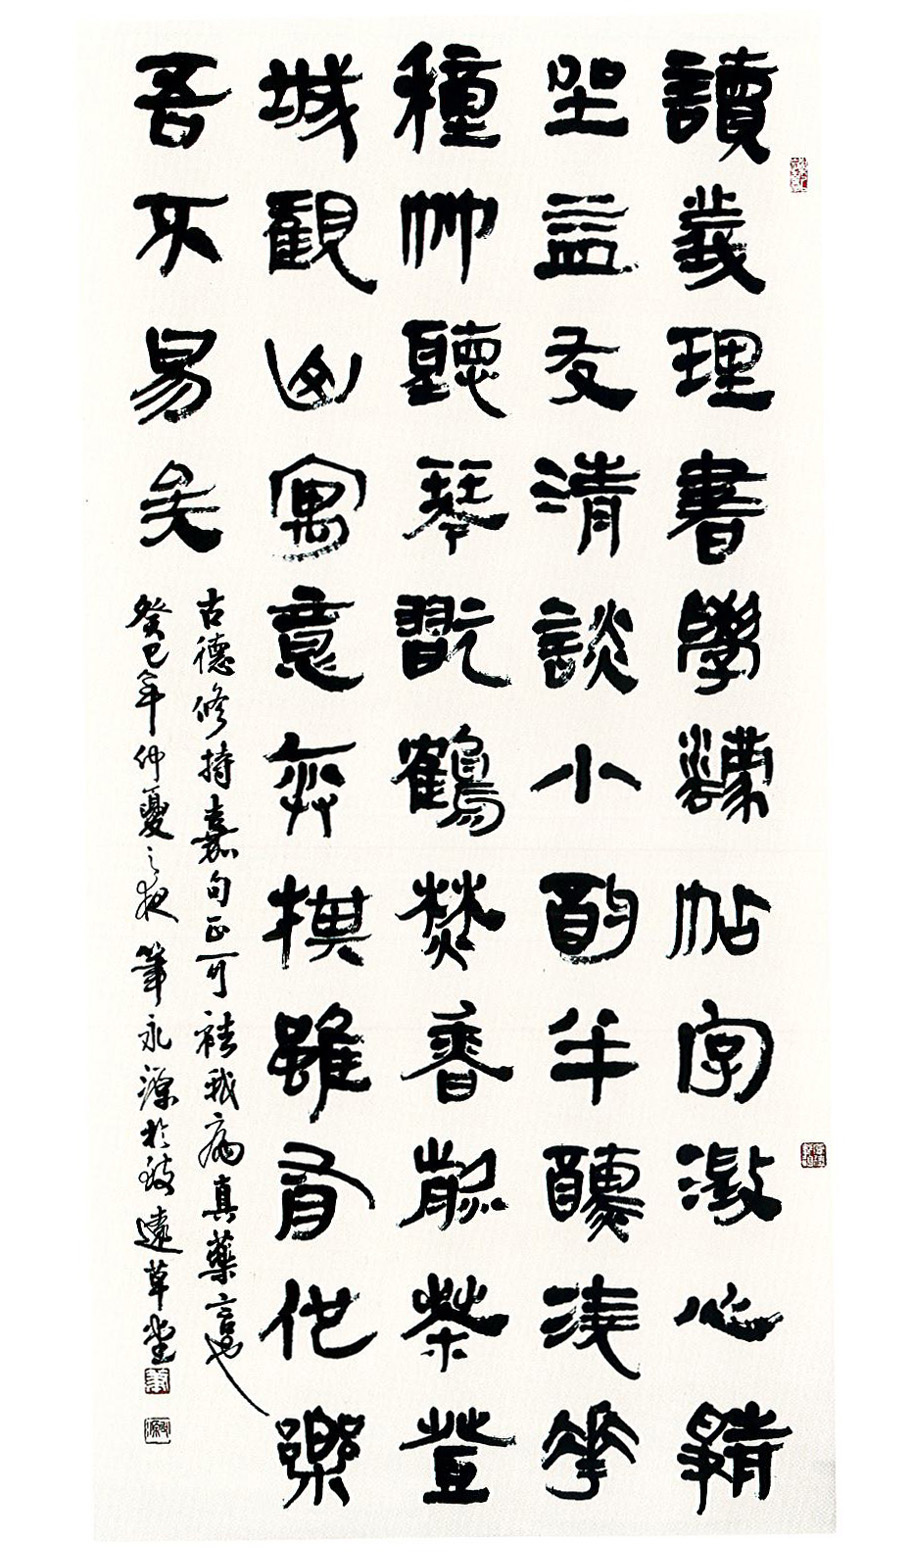 讀義理書學灋帖字澂心靜
坐益友清談小酌半醺澆花
種竹聽琴翫鶴焚香煎茶登
城觀山寓意弈棋雖有他樂
吾不易矣
古德修持嘉句正可祛我病真藥言也
癸巳年仲夏之夜永源於致遠草堂